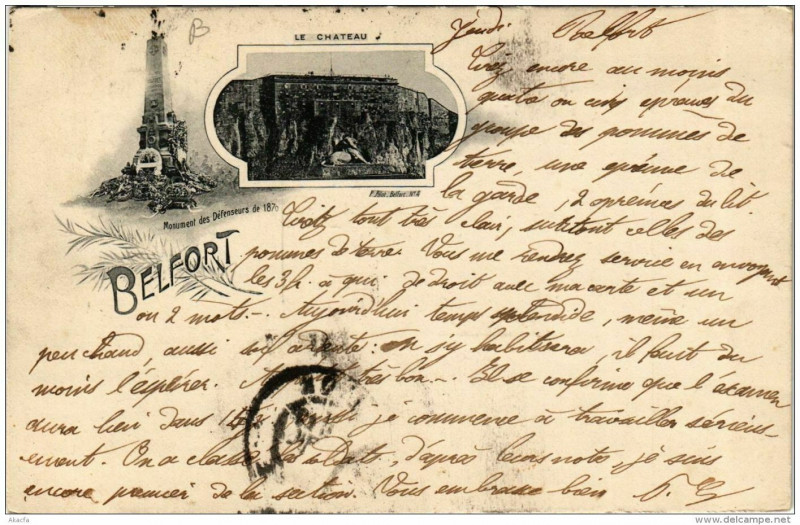 B
LE CHATEAU
Monument des Défenseurs de 1870
BELFORT
Jeudi Belfort
Tirez encore au moins
quatre ou cinq épreuves du
groupe des pommes de
terre, une épreuve de
la garde, 2 épreuves du lit
Tirez tout très clair, surtout celles des
pommes de terre. Vous me rendrez service en envoyant
les 3 f. à qui de droit avec ma carte et un
ou 2 mots. – Aujourd'hui temps splendide, même un
peu chaud, aussi soif ardente : on s'y habituera, il faut du
moins l'espérer. très bon –. Il se confirme que l'examen
aura lieu dans je commence à travailler sérieuse-
ment. On a classé les soldats, d'après leurs notes, je suis
encore premier de la section. Vous embrasse bien
Akacfa
www.delcampe.net